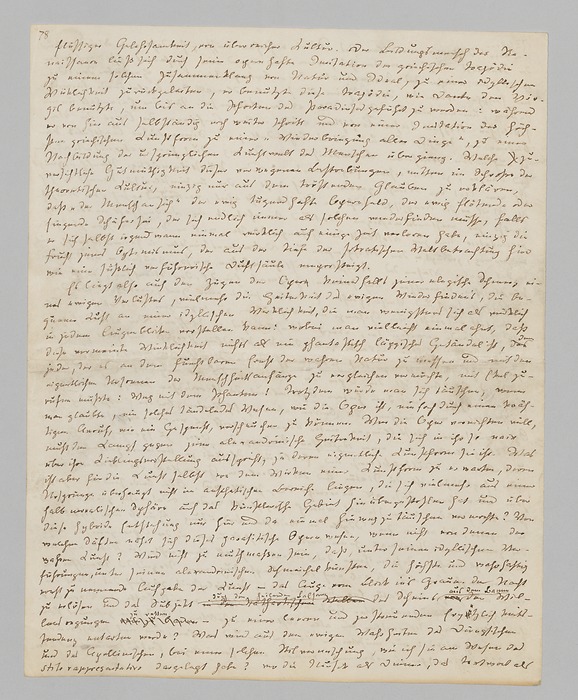 78
flüssiger Gelehrsamkeit, von überreicher Cultur. Der Bildungsmensch der Re-
naissance ließ sich durch seine opernhafte Imitation der griechischen Tragödie
zu einem solchen Zusammenklang von Natur und Ideal, zu einer idyllischen
Wirklichkeit zurückgeleiten, er benutzte diese Tragödie, wie Dante den Vir-
gil benutzte, um bis an die Pforten des Paradieses geführt zu werden: während
er von hier aus selbständig noch weiter schritt und von einer Imitation der höch-
sten griechischen Kunstform zu einer „Wiederbringung aller Dinge“, zu einer
Nachbildung der ursprünglichen Kunstwelt des Menschen überging. Welche zu-
versichtliche Gutmüthigkeit dieser verwegenen Bestrebungen, mitten im Schooße der
theoretischen Cultur, einzig nur aus dem tröstenden Glauben zu erklären,
daß „der Mensch an sich“ der ewig tugendhafte Opernheld, der ewig flötende oder
singende Schäfer sei, der sich endlich immer als solchen wiederfinden müsse, falls
er sich selbst irgendwann einmal wirklich auf einige Zeit verloren habe, einzig die
Frucht jenes Optimismus, der aus der Tiefe der sokratischen Weltbetrachtung hier
wie eine süßlich verführerische Duftsäule emporsteigt.
Es liegt also auf den Zügen der Oper keinesfalls jener elegische Schmerz ei-
nes ewigen Verlustes, vielmehr die Heiterkeit des ewigen Wiederfindens, die be-
queme Lust an einer idyllischen Wirklichkeit, die man wenigstens sich als wirklich
in jedem Augenblicke vorstellen kann: wobei man vielleicht einmal ahnt, daß
diese vermeinte Wirklichkeit nichts als ein phantastisch läppisches Getändel ist, dem
jeder, der es an dem furchtbaren Ernst der wahren Natur zu messen und mit den
eigentlichen Urscenen der Menschheitsanfänge zu vergleichen vermöchte, mit Ekel zu-
rufen müßte: Weg mit dem Phantom! Trotzdem würde man sich täuschen, wenn
man glaubte, ein solches tändelndes Wesen, wie die Oper ist, einfach durch einen kräf-
tigen Anruf, wie ein Gespenst, verscheuchen zu können. Wer die Oper vernichten will,
muß den Kampf gegen jene alexandrinische Heiterkeit, die sich in ihr so naiv
über ihre Lieblingsvorstellung ausspricht, ja deren eigentliche Kunstform sie ist. Was
ist aber für die Kunst selbst von dem Wirken einer Kunstform zu erwarten, deren
Ursprünge überhaupt nicht im aesthetischen Bereiche liegen, die sich vielmehr aus einer
halb moralischen Sphäre auf das künstlerische Gebiet hinübergestohlen hat und über
diese hybride Entstehung nur hier und da einmal hinwegzutäuschen vermochte? Von
welchen Säften nährt sich dieses parasitische Opernwesen, wenn nicht von denen der
wahren Kunst? Wird nicht zu muthmaßen sein, daß, unter seinen idyllischen Ver-
führungen, unter seinen alexandrinischen Schmeichelkünsten, die höchste und wahrhaftig
ernst zu nennende Aufgabe der Kunst – das Auge vom Blick ins Grauen der Nacht
zu erlösen und das Subjekt durch den heilenden Balsam des Scheins aus dem Krampfe der Wil-
lensregungen zu retten – zu einer leeren und zerstreuenden Ergötzlichkeits-
tendenz entarten werde? Was wird aus den ewigen Wahrheiten des Dionysischen
und des Apollinischen, bei einer solchen Stilvermischung, wie ich sie am Wesen des
stilo rappresentativo dargelegt habe? wo die Musik als Diener, das Textwort als